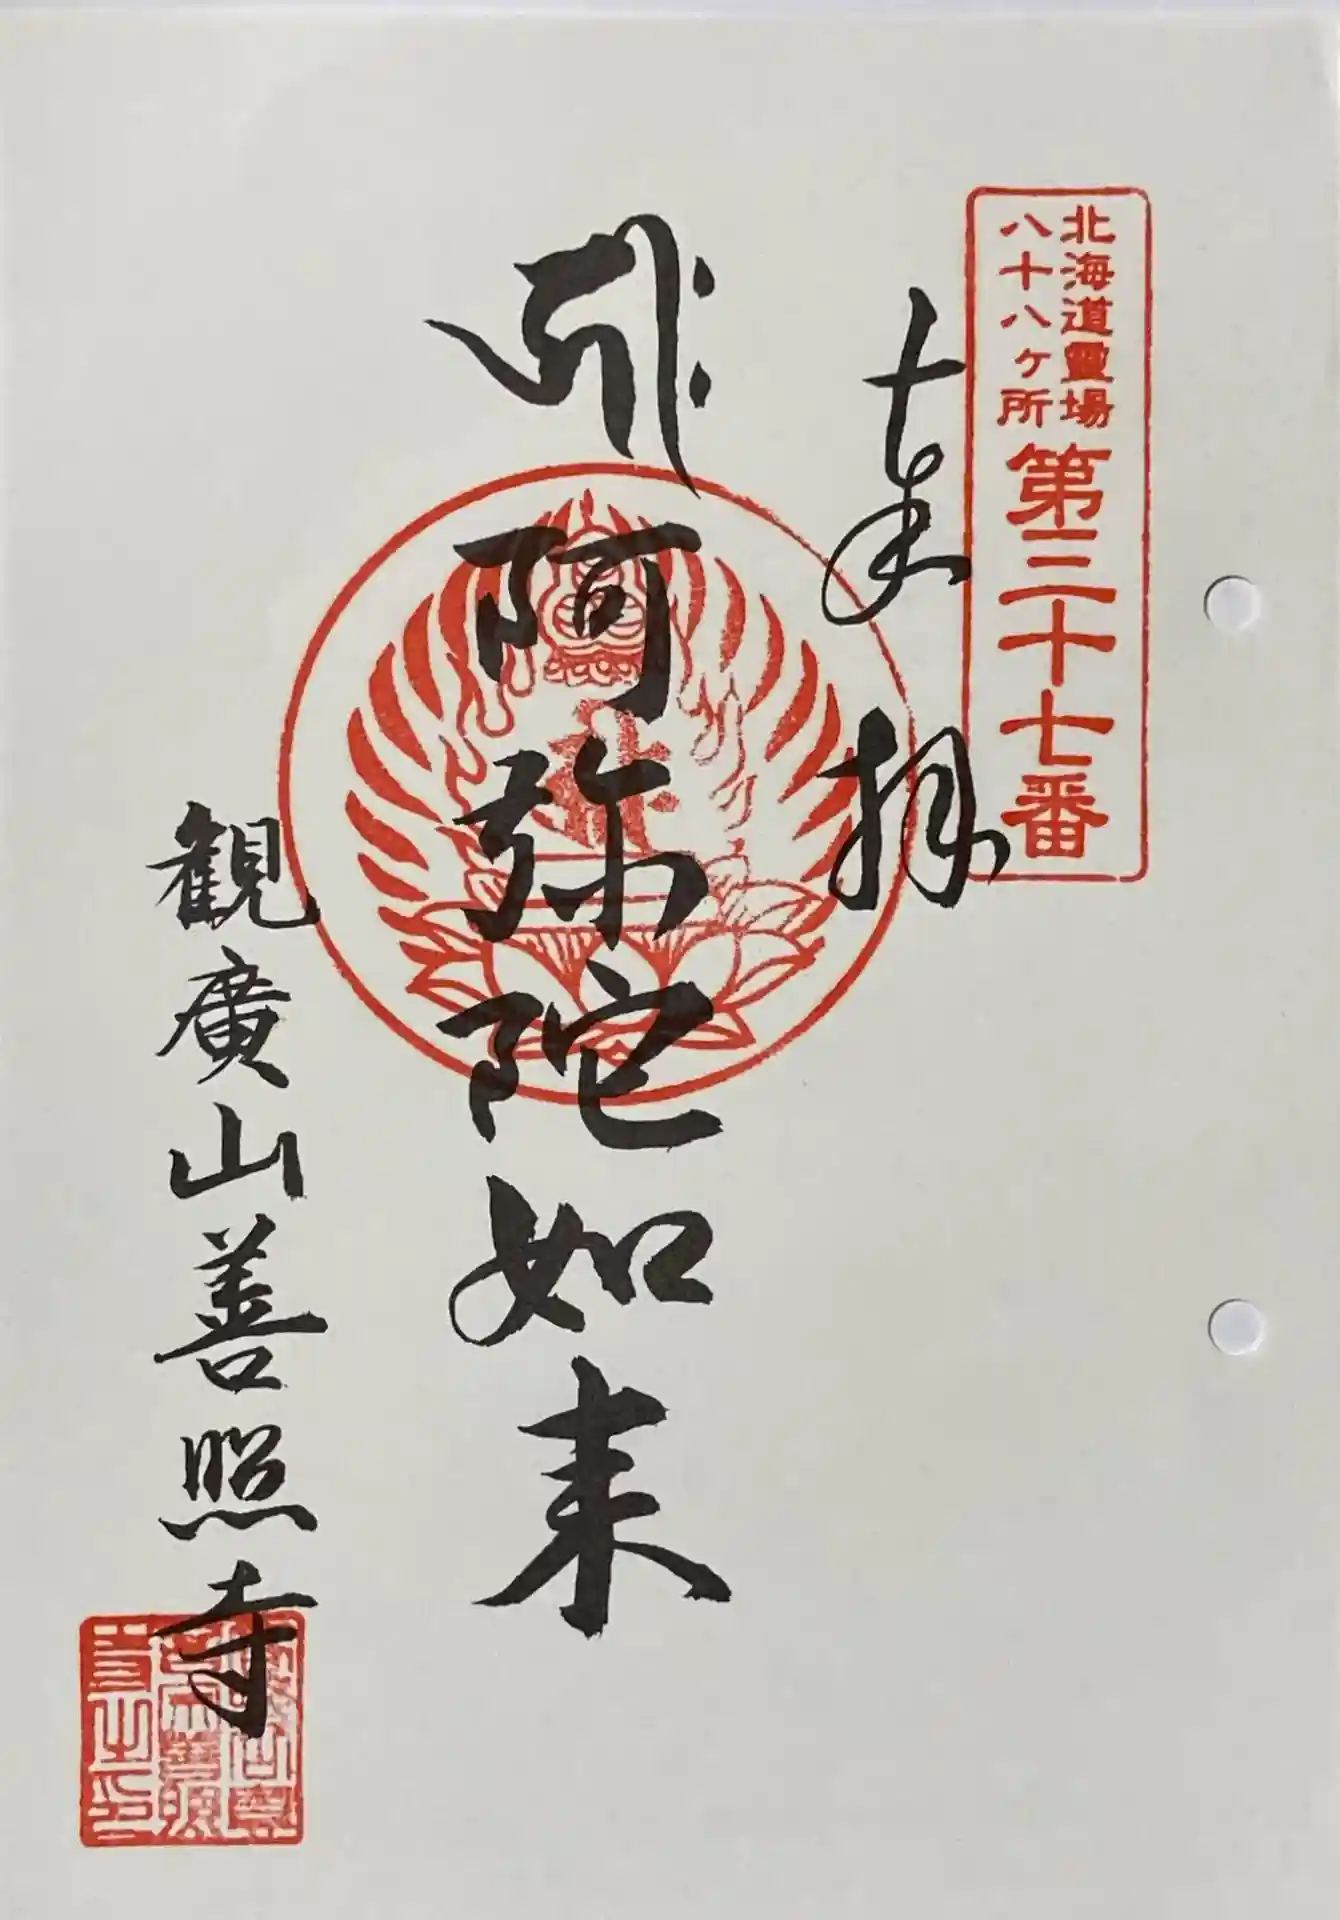 北海道霊場
八十八ヶ所
第三十七番
奉拝
阿弥陀如来
観廣山善照寺